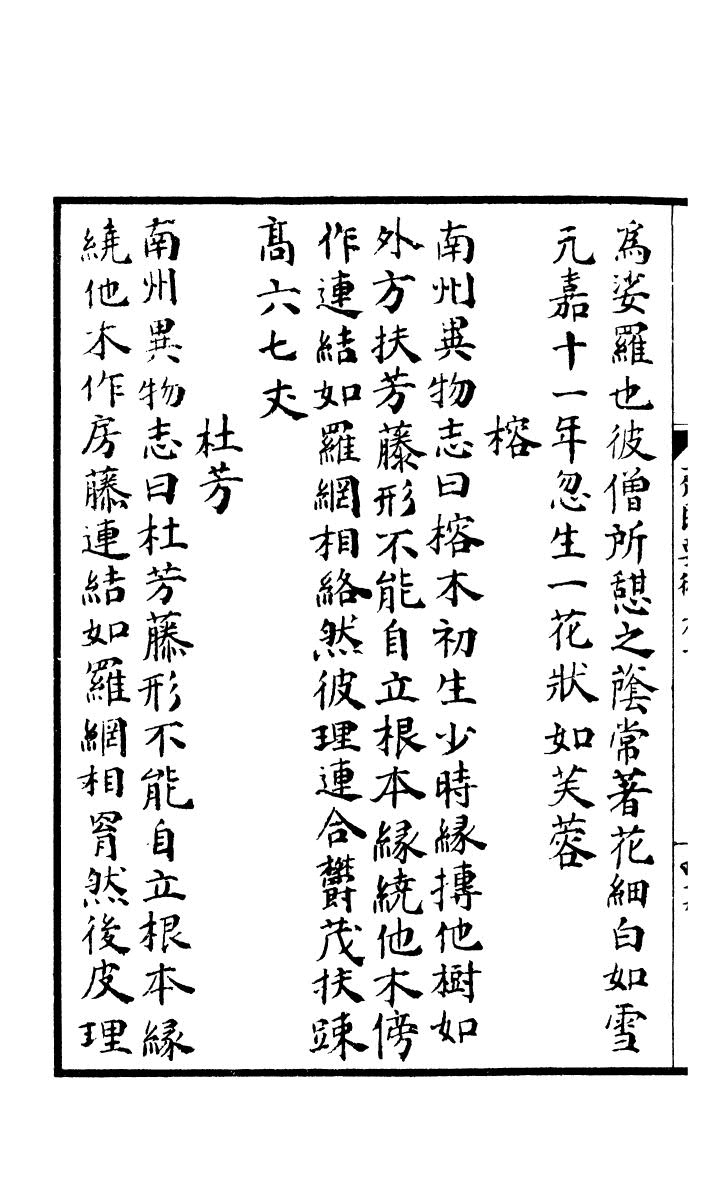 為娑羅也彼僧所憩之蔭常著花細白如雪
元嘉十一年忽生一花狀如芙蓉
榕
南州異物志曰榕木初生少時緣摶他樹如
外方扶芳藤形不能自立根本緣繞他木傍
作連結如羅網相絡然彼理連合鬱茂扶踈
髙六七丈
杜芳
南州異物志曰杜芳藤形不能自立根本緣
繞他木作房藤連結如羅網相罥然後皮理